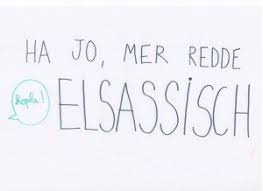 HA JO, MER REDDE
hopla!
ELSASSISCH